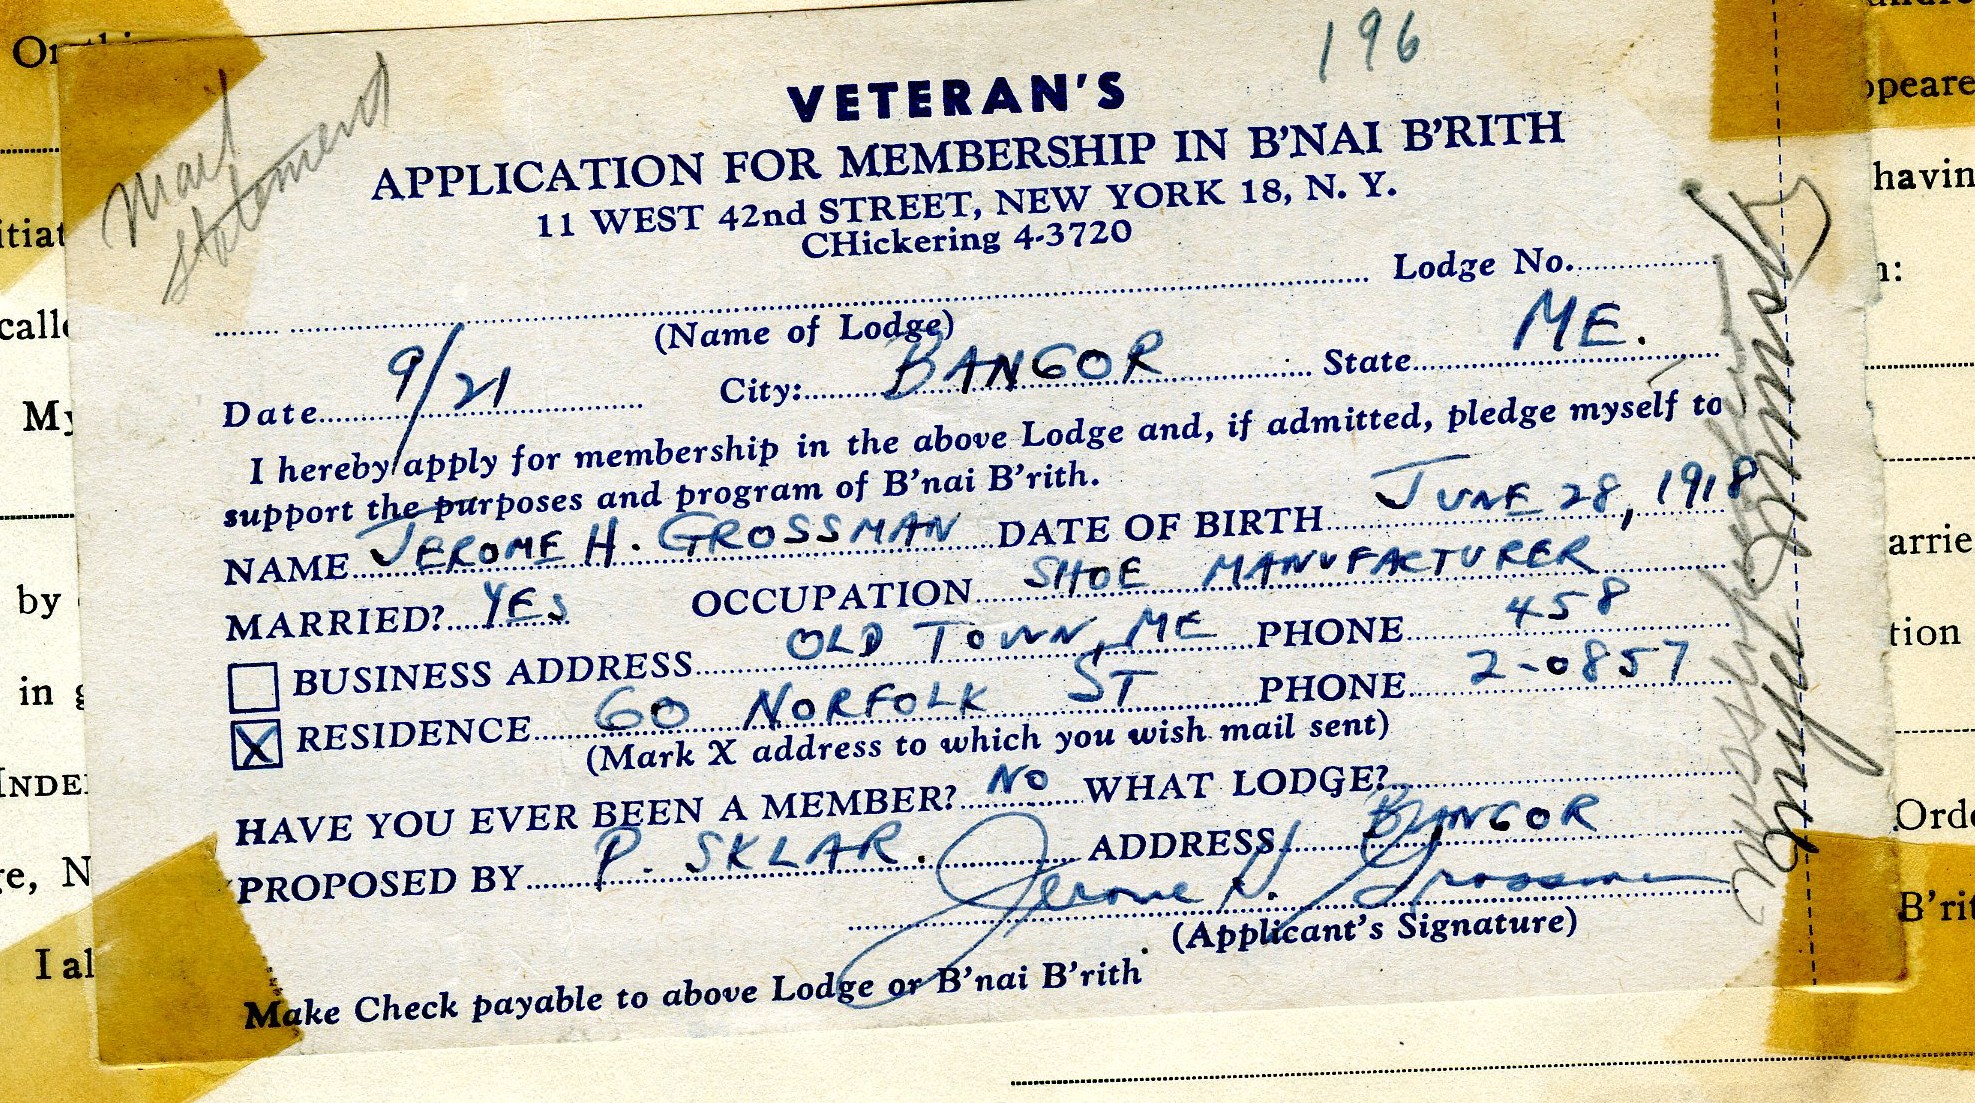 196
Mail
statement
VETERAN'S
APPLICATION FOR MEMBERSHIP IN B'NAI B'RITH
11 WEST 42nd STREET, NEW YORK 18, N. Y.
CHickering 4-3720
Lodge No.
(Name of Lodge)
Date 9/21 City: BANGOR State ME.
I hereby apply for membership in the above Lodge and, if admitted, pledge myself to
support the purposes and program of B'nai B'rith.
NAME JEROME H. GROSSMAN DATE OF BIRTH JUNE 28, 1918
MARRIED? YES OCCUPATION SHOE MANUFACTURER
BUSINESS ADDRESS OLD TOWN, ME PHONE 458
X RESIDENCE 60 NORFOLK ST PHONE 2-0857
(Mark X address to which you wish mail sent)
HAVE YOU EVER BEEN A MEMBER? NO WHAT LODGE?
PROPOSED BY P. SKLAR. ADDRESS BANGOR
Jerome H. Grossman
(Applicant's Signature)
Make Check payable to above Lodge or B'nai B'rith
call
My
by
in
I al
havin
arrie
tion
Orde
B'rit